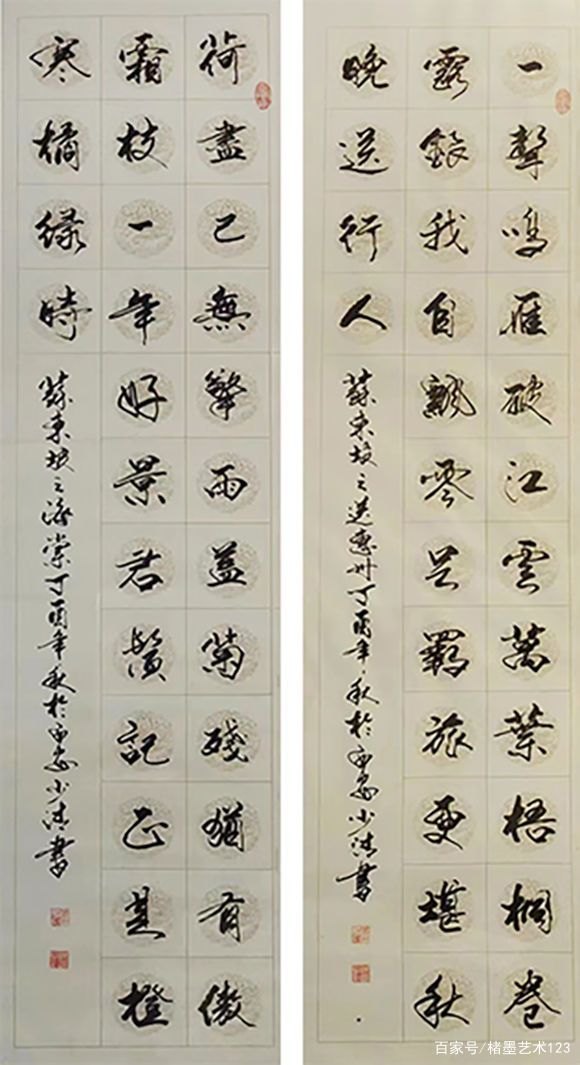 一聲鳴雁破江雲萬葉梧桐卷
露銀我自飄零足羇旅更堪秋
晚送行人
蘇東坡之送惠州丁酉年秋於書
荷盡已無擎雨蓋菊殘猶有傲
霜枝一年好景君鬚記正是橙
寒橘緑時
蘇東坡之海棠丁酉年秋於書
百家号/楮墨艺术123